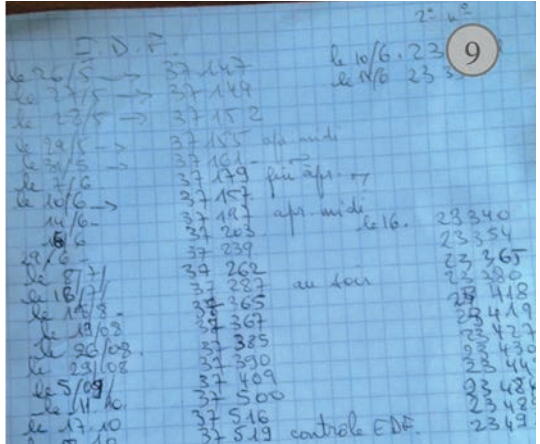 2e n°
E.D.F. le 10/6. 23
9
le 26/5 → 37 147 le 12/6 23 3
le 27/5 → 37 149
le 28/5 → 37 152
le 29/5 → 37 155 apr. midi
le 31/5 → 37 161
le 7/6 37 179 fin apr.
le 10/6 → 37 157
14/6 - 37 187 apr. midi le 16. 23340
16/6 37 203 23354
29/6 - 37 239 23365
le 8/7/ 37 262 23380
le 18/7/ 37 287 au soir 418
le 18/8- 37 365 23419
le 19/08 37 367 23427
le 26/08. 37 385 23430
le 29/08 37 390
le 5/09/ 37 409 23484
le 11/10. 37 500 2348
le 17.10 37 516 2349
37 519 contrôle EDF.